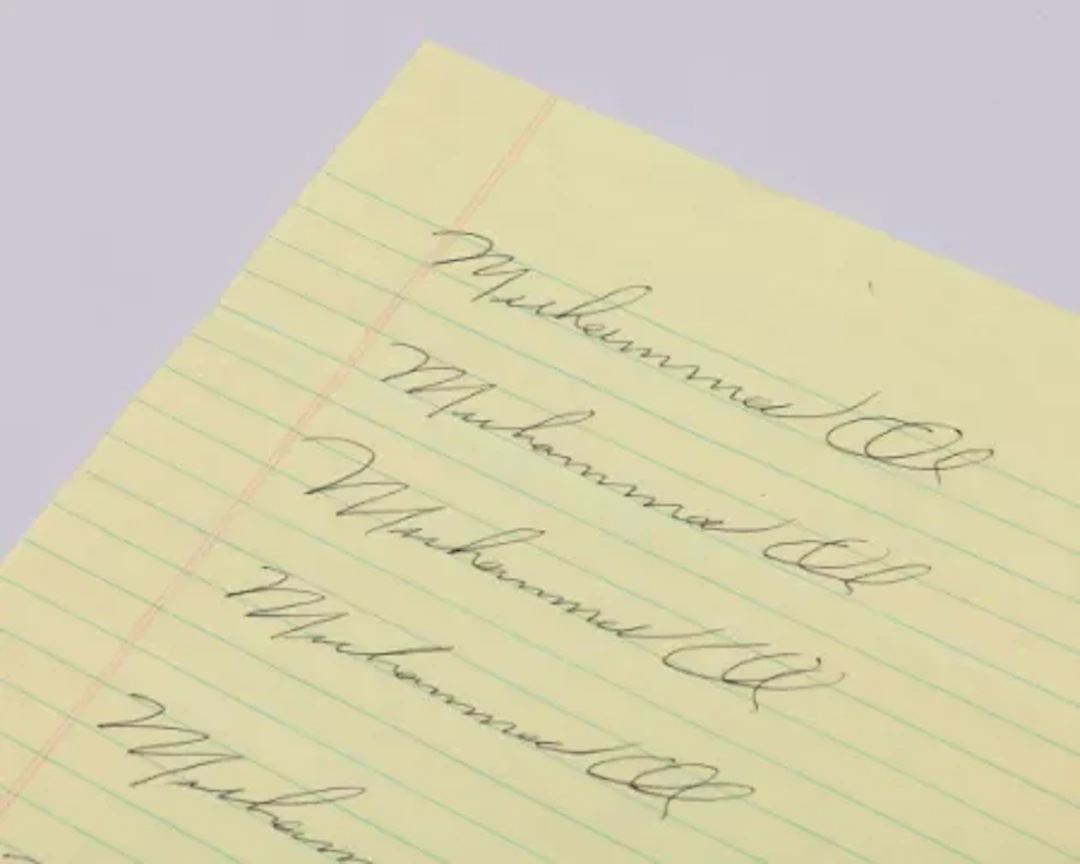 Muhammad Ali
Muhammad Ali
Muhammad Ali
Muhammad Ali
Muham